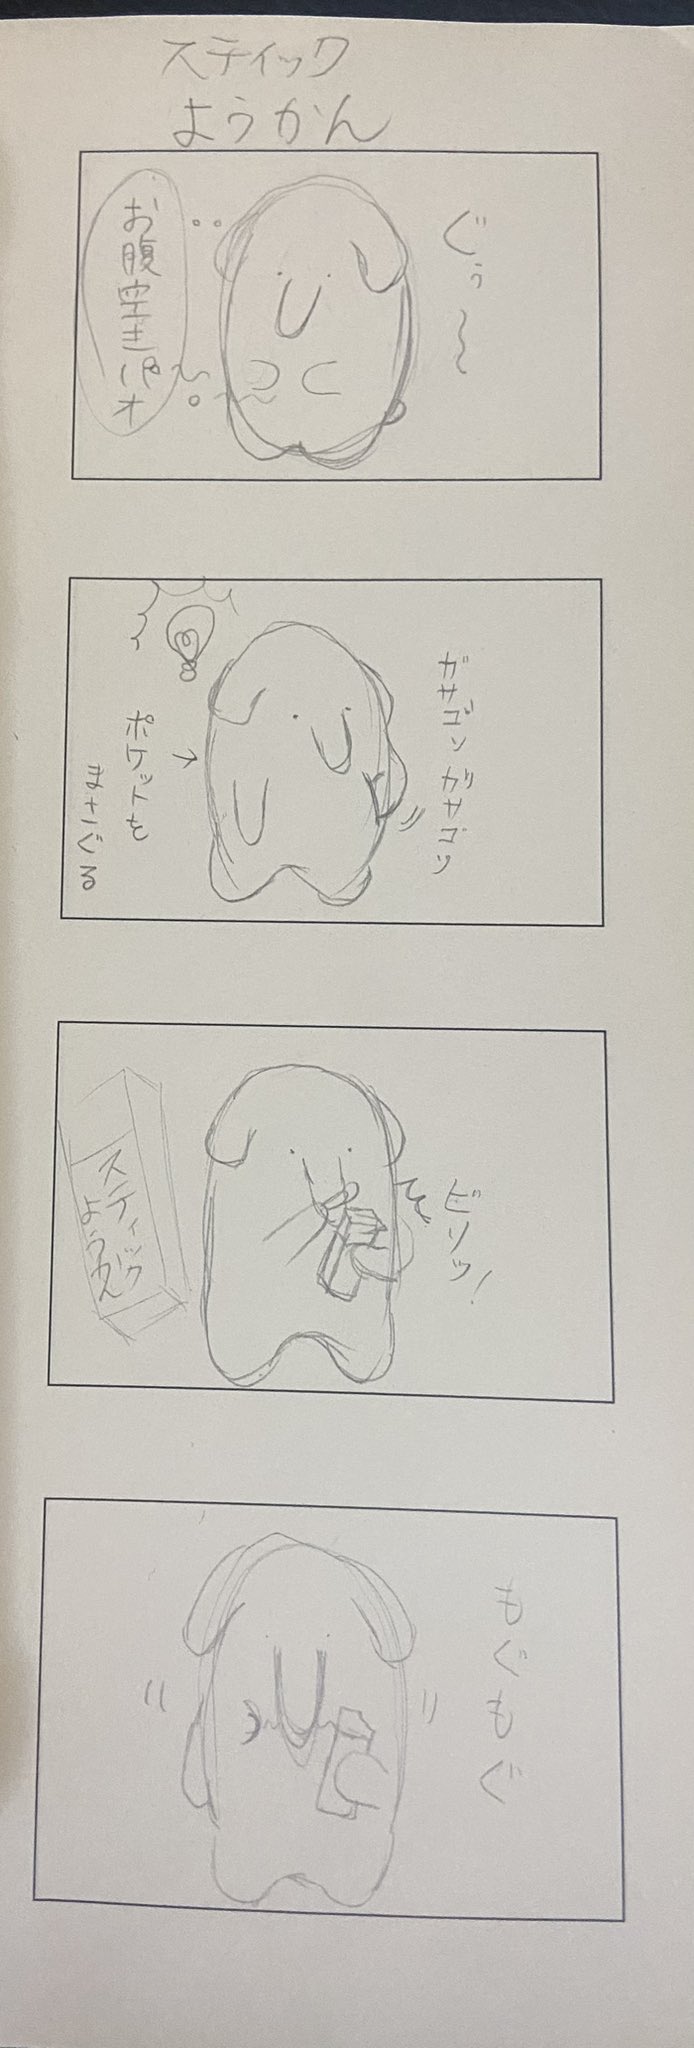 スティック
ようかん
ぐぅ〜
お腹空きパオ
ガサゴソ ガサゴソ
ポケットを
まさぐる
ビリッ!
スティック
ようかん
もぐもぐ